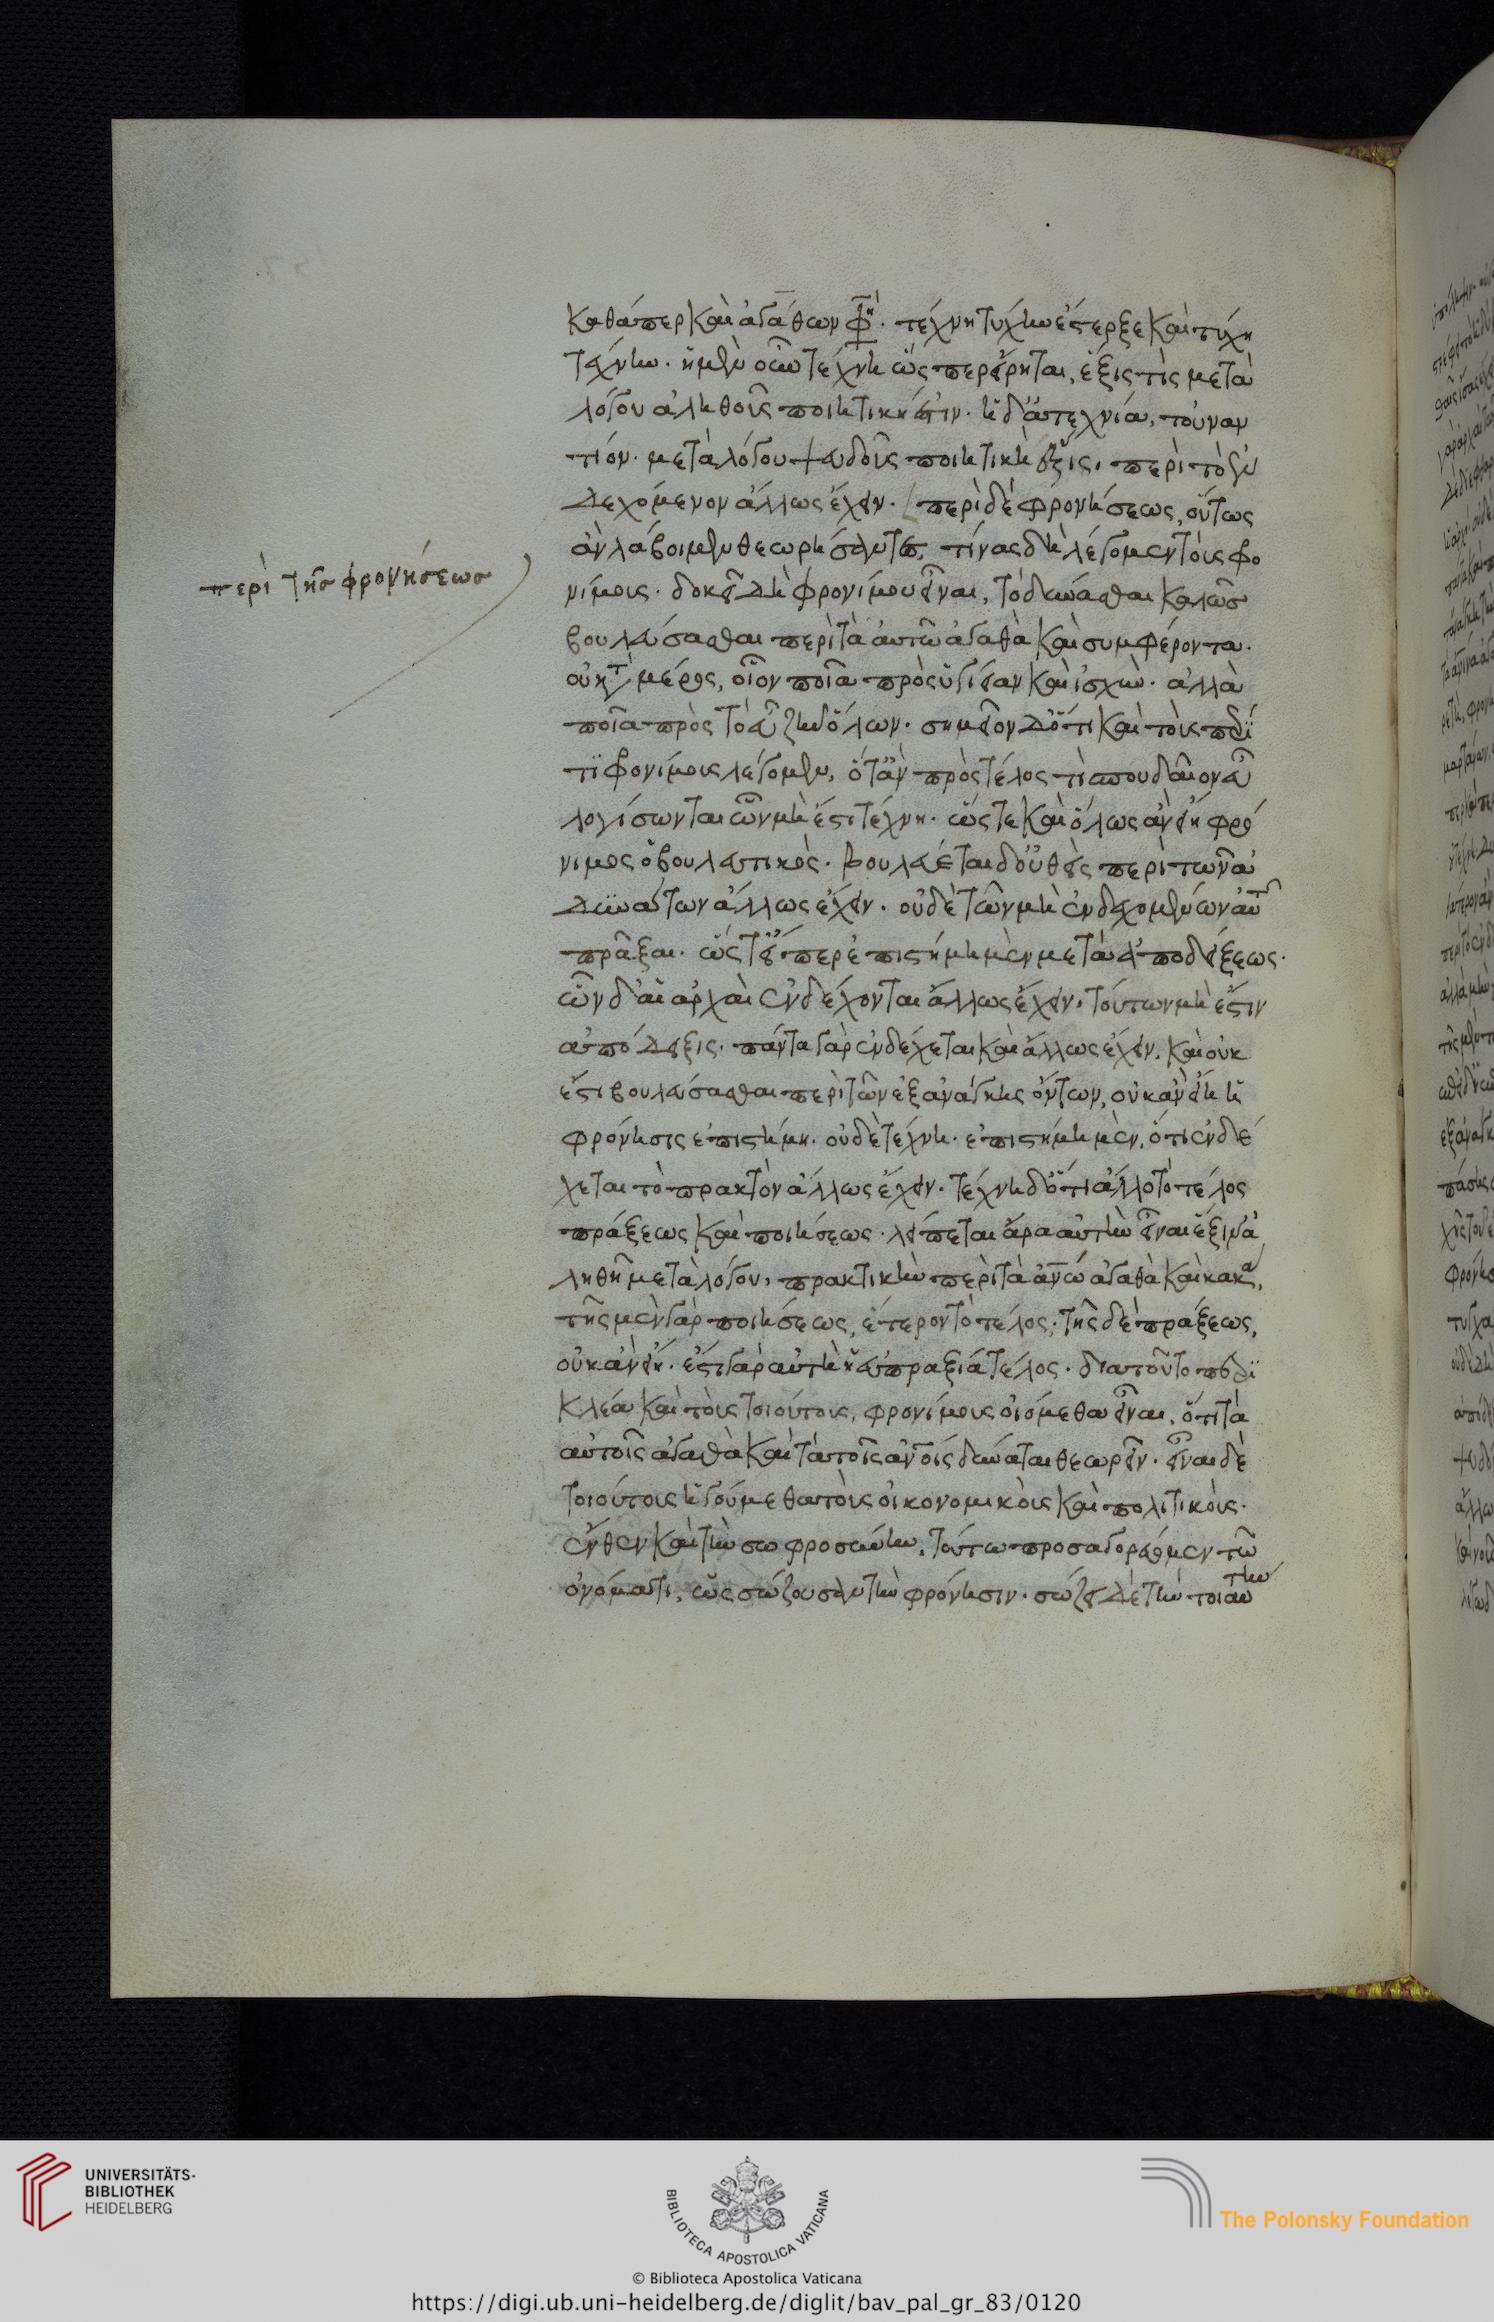 καθάπερ καὶ ἀγάθων φη. τέχνη τύχην ἔστερξε καὶ τύχη
τέχνην. ἡ μὲν οὖν τέχνη ὥσπερ εἴρηται, ἕξις τὶς μετὰ
λόγου ἀληθοῦς ποιητική ἐστιν. ἡ δ' ἀτεχνία, τοὐναν
τίον. μετὰ λόγου ψευδοῦς ποιητικὴ ἕξις. περὶ τὸ ἐν
δεχόμενον ἄλλως ἔχειν. περὶ δὲ φρονήσεως, οὕτως
ἂν λάβοιμεν θεωρήσαντες, τίνας δὴ λέγομεν τοὺς φρο
περὶ τῆς φρονήσεως
νίμους. δοκεῖ δὴ φρονίμου εἶναι, τὸ δύνασθαι καλῶς
βουλεύσασθαι περὶ τὰ αὐτῶ ἀγαθὰ καὶ συμφέροντα.
οὐ κτ μέρος, οἷον ποῖα πρὸς ὑγίειαν καὶ ἰσχύν. ἀλλὰ
ποῖα πρὸς τὸ εὖ ζῆν ὅλων. σημεῖον δ' ὅτι καὶ τοὺς περί
τι φρονίμους λέγομεν, ὅταν πρὸς τέλος τὶ σπουδαῖον εὖ
λογίσωνται ὧν μὴ ἔστι τέχνη. ὥστε καὶ ὅλως ἂν εἴη φρό
νιμος ὁ βουλευτικός. βουλεύεται δ' οὐθεὶς περὶ τῶν ἀ
δυνάτων ἄλλως ἔχειν. οὐδὲ τῶν μὴ ἐνδεχομένων αὐτ
πρᾶξαι. ὥστ' εἴπερ ἐπιστήμη μὲν μετὰ ἀποδείξεως.
ὧν δ' αἱ ἀρχαὶ ἐνδέχονται ἄλλως ἔχειν, τούτων μὴ ἔστιν
ἀπόδειξις. πάντα γὰρ ἐνδέχεται καὶ ἄλλως ἔχειν. καὶ οὐκ
ἔστι βουλεύσασθαι περὶ τῶν ἐξ ἀνάγκης ὄντων, οὐκ ἂν εἴη ἡ
φρόνησις ἐπιστήμη. οὐδὲ τέχνη. ἐπιστήμη μὲν, ὅτι ἐνδέ
χεται τὸ πρακτὸν ἄλλως ἔχειν. τέχνη δ' ὅτι ἄλλο τὸ τέλος
πράξεως καὶ ποιήσεως. λείπεται ἄρα αὐτὴν εἶναι ἕξιν ἀ
ληθῆ μετὰ λόγου, πρακτικὴν περὶ τὰ ἀνω ἀγαθὰ καὶ κακά,
τῆς μὲν γὰρ ποιήσεως, ἕτερον τὸ τέλος. τῆς δὲ πράξεως,
οὐκ ἂν εἴη. ἔστι γὰρ αὐτὴ ἡ εὐπραξία τέλος. διατοῦτο περι
κλέα καὶ τοὺς τοιούτους, φρονίμους οἰόμεθα εἶναι, ὅτι τὰ
αὑτοῖς ἀγαθὰ καὶ τὰ τοῖς ἀνοις δύναται θεωρεῖν. εἶναι δὲ
τοιούτους ἡγούμεθα τοὺς οἰκονομικοὺς καὶ πολιτικούς.
ἔνθεν καὶ τὴν σωφροσύνην, τούτω προσαγορεύομεν τῶ
ὀνόματι, ὡς σώζουσαν τὴν φρόνησιν. σώζει δὲ τὴν τοιαύτην
UNIVERSITÄTS-
BIBLIOTHEK
HEIDELBERG
BIBLIOTECA APOSTOLICA VATICANA
© Biblioteca Apostolica Vaticana
The Polonsky Foundation
https://digi.ub.uni-heidelberg.de/diglit/bav_pal_gr_83/0120